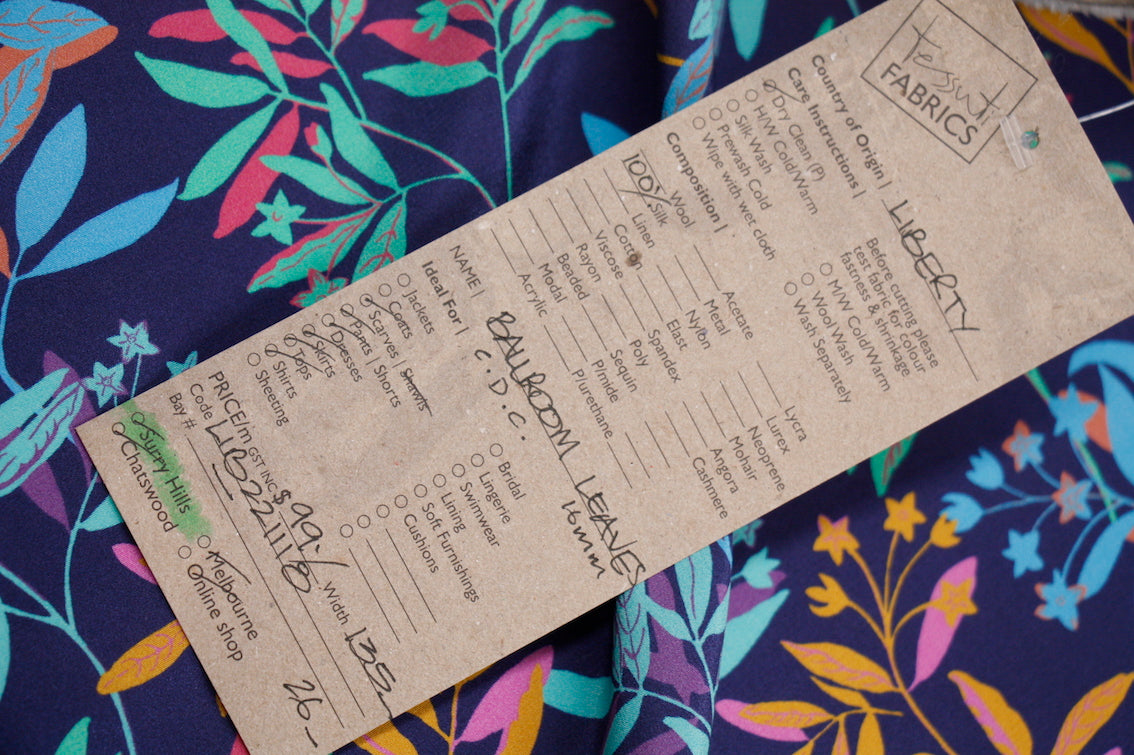 Tessuti
FABRICS
Country of Origin | LIBERTY
Care Instructions |
Dry Clean (P)
H/W Cold/Warm
Silk Wash
Prewash Cold
Wipe with wet cloth
Before cutting please
test fabric for colour
fastness & shrinkage
M/W Cold/Warm
Wool Wash
Wash Separately
Composition |
Wool
100% Silk
Linen
Cotton
Viscose
Rayon
Beaded
Modal
Acrylic
Acetate
Metal
Nylon
Elast
Spandex
Poly
Sequin
P/mide
P/urethane
Lycra
Lurex
Neoprene
Mohair
Angora
Cashmere
NAME | BALLROOM LEAVES
C.D.C. 16mm
Ideal For |
Jackets
Coats
Scarves Shawls
Pants | Shorts
Dresses
Skirts
Tops
Shirts
Sheeting
Bridal
Lingerie
Swimwear
Lining
Soft Furnishings
Cushions
PRICE/m GST INC $ 99.- Width 135
Code LIB22111B
Bay # 26
Surry Hills
Chatswood
Melbourne
Online shop